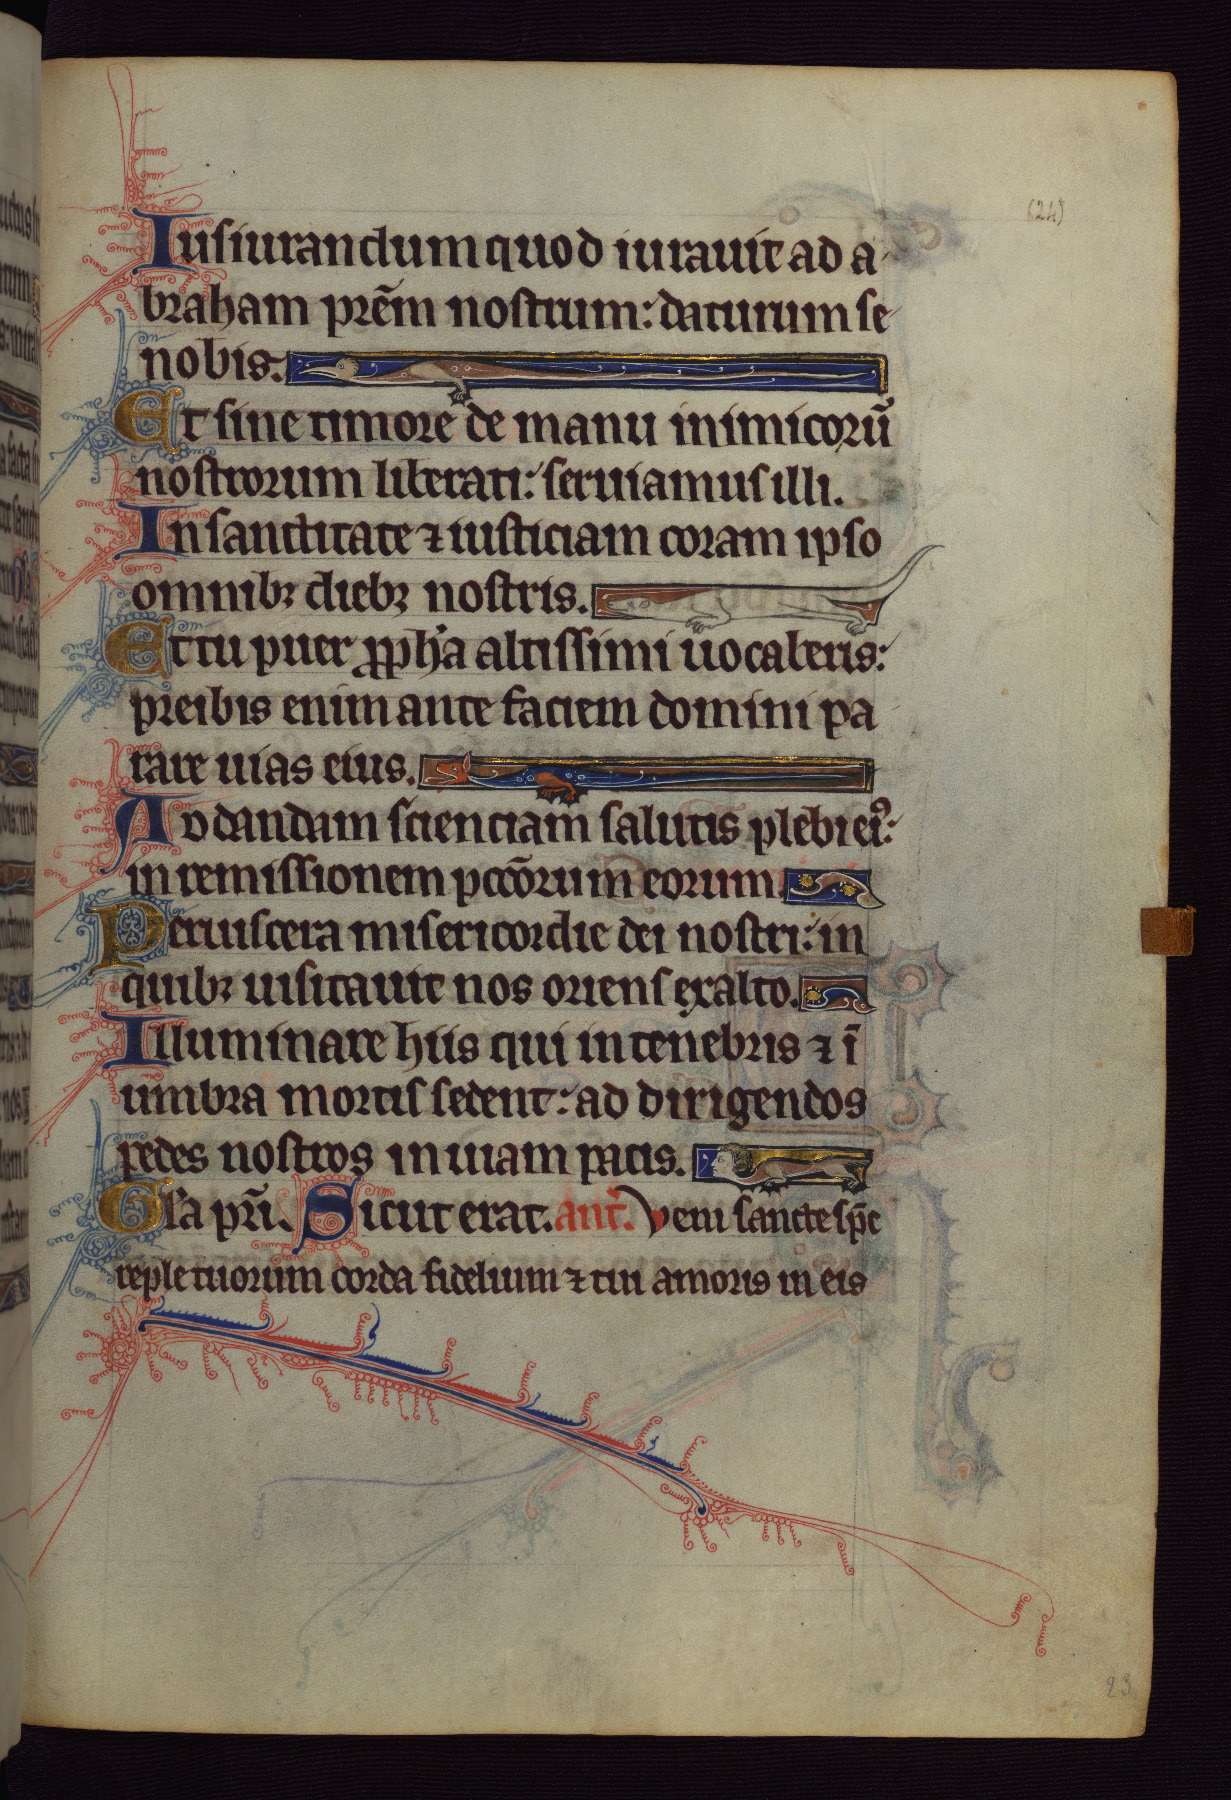 (24)
Iusiurandum quod iurauit ad a
braham pr̄em nostrum: daturum se
nobis.
Et sine timore de manu inimicorū
nostrorum liberati: seruiamus illi.
In sanctitate ⁊ iusticiam coram ipso
omnibꝫ diebꝫ nostris.
Et tu puer ꝓph'a altissimi uocaberis:
preibis enim ante faciem domini pa
rare uias eius.
Ad dandam scienciam salutis plebi eiꝰ:
in remissionem pccōrum eorum.
Per uiscera misericordie dei nostri: in
quibꝫ uisitauit nos oriens ex alto.
Illuminare hiis qui in tenebris ⁊ ī
umbra mortis sedent: ad dirigendos
pedes nostros in uiam pacis.
Gl'a pr̄i. Sicut erat. ant'. Veni sancte sp̄c
reple tuorum corda fidelium ⁊ tui amoris in eis
23